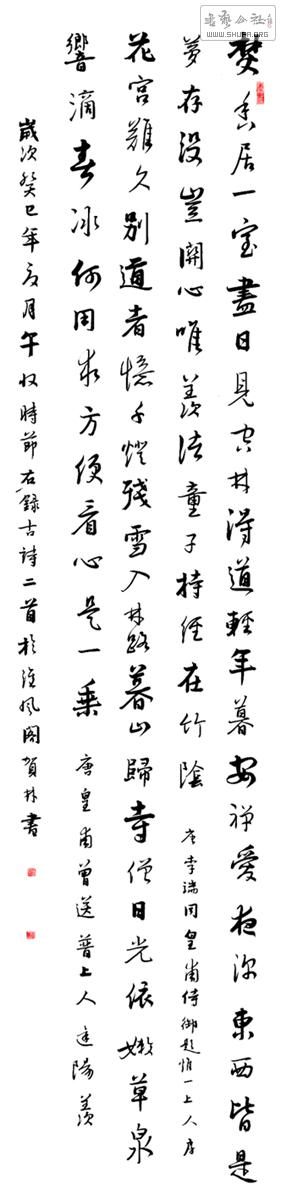 書藝公社
WWW.SHUFA.ORG
焚香居一室盡日見空林得道輕年暮安禪愛夜深東西皆是
夢存没豈關心唯羨諸童子持經在竹陰 唐李端同皇甫侍御題惟一上人房
花宮難久別道者憶千燈殘雪入林路暮山歸寺僧日光依嫩草泉
響滴春冰何用求方便看心是一乘 唐皇甫曾送普上人還陽羨
歲次癸巳年夏月午收時節右錄古詩二首於風閣賀林書